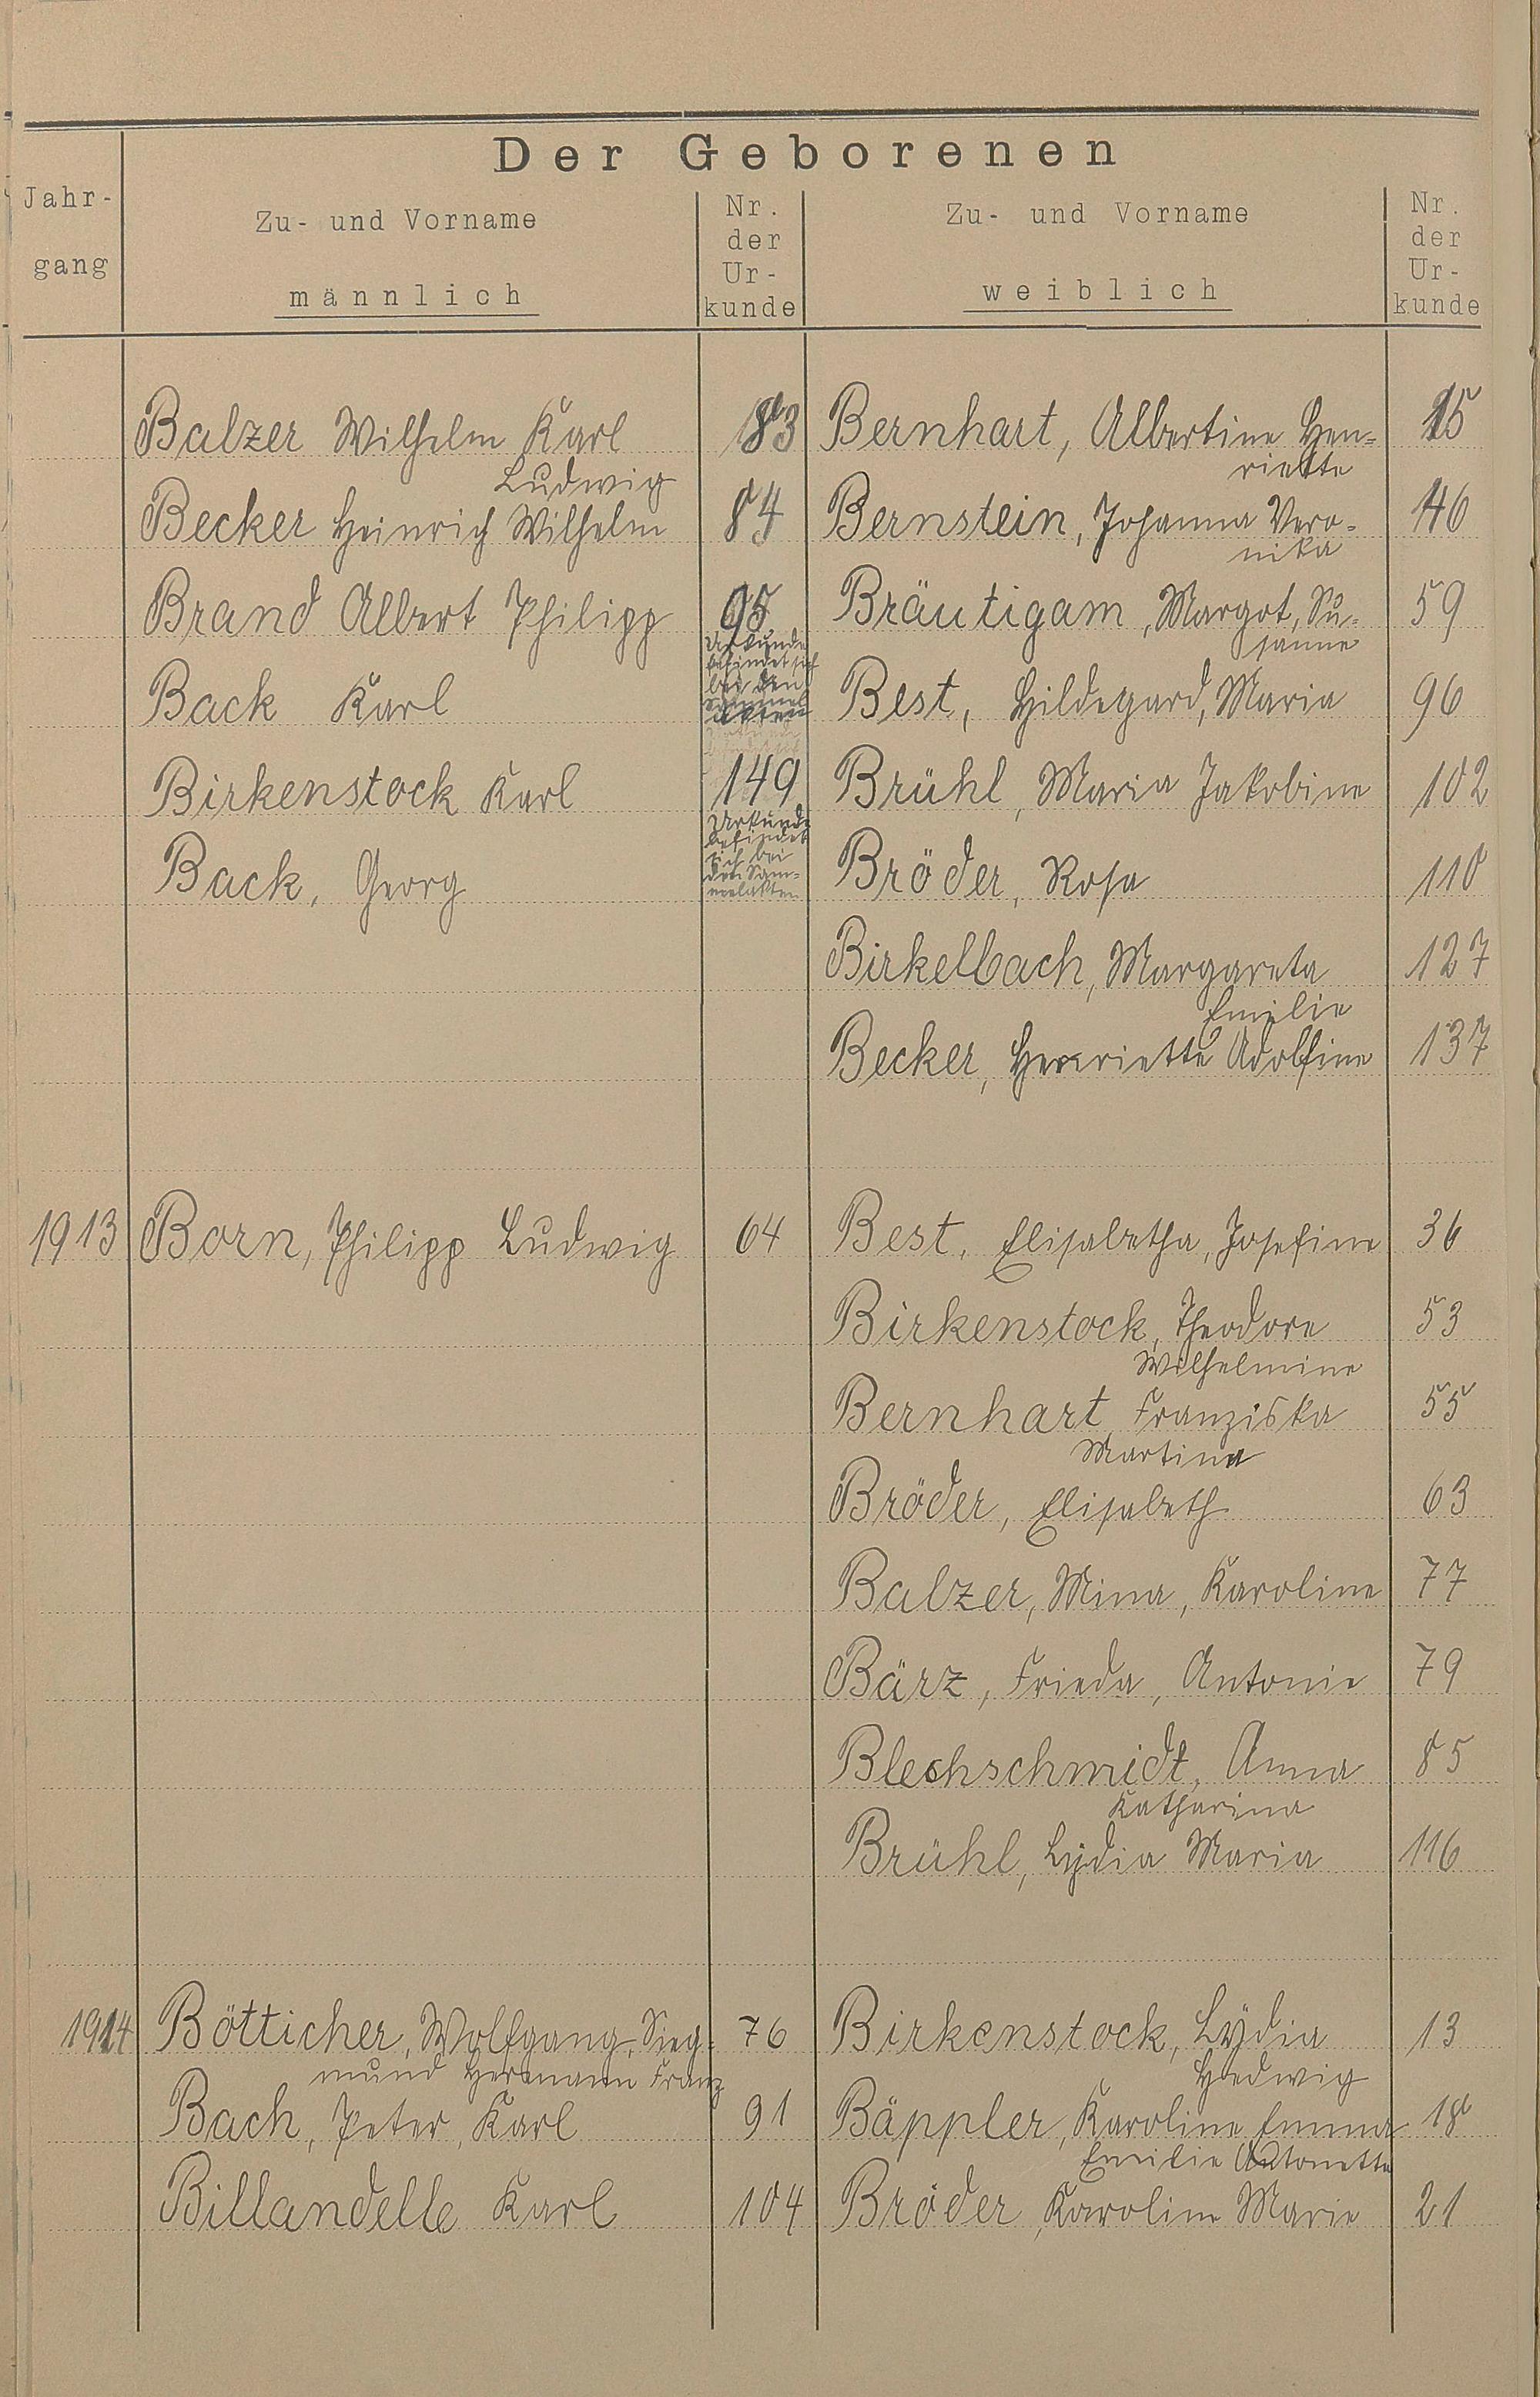 Der Geborenen
Jahr-
gang
Zu- und Vorname
männlich
Nr.
der
Ur-
kunde
Zu- und Vorname
weiblich
Nr.
der
Ur-
kunde
Balzer Wilhelm Karl 83 Bernhart, Albertine Hen- 15
Ludwig riette
Becker Heinrich Wilhelm 84 Bernstein, Johanna Vero- 46
nika
Brand Albert Philipp 95 Bräutigam, Margot, Su- 59
Urkunde sanne
befindet sich
bei den
Back Karl Sammel Best, Hildegard, Maria 96
akten
Birkenstock Karl 149 Brühl, Maria Jakobine 102
Urkunde
befindet
sich bei
Back, Georg den Sam- Bröder, Rosa 110
melakten
Birkelbach, Margareta 127
Emilie
Becker, Henriette Adolfine 137
1913 Born, Philipp Ludwig 64 Best, Elisabetha, Josefine 36
Birkenstock, Theodore 53
Wilhelmine
Bernhart, Franziska 55
Martina
Bröder, Elisabeth 63
Balzer, Mina, Karoline 77
Bärz, Frieda, Antonie 79
Blechschmidt, Anna 85
Katharina
Brühl, Lydia Maria 116
1914 Bötticher, Wolfgang, Sieg- 76 Birkenstock, Lydia 13
mund Hermann Franz Hedwig
Bach, Peter, Karl 91 Bäppler, Karoline Emma 18
Emilie Antonette
Billandelle Karl 104 Bröder, Karoline Marie 21